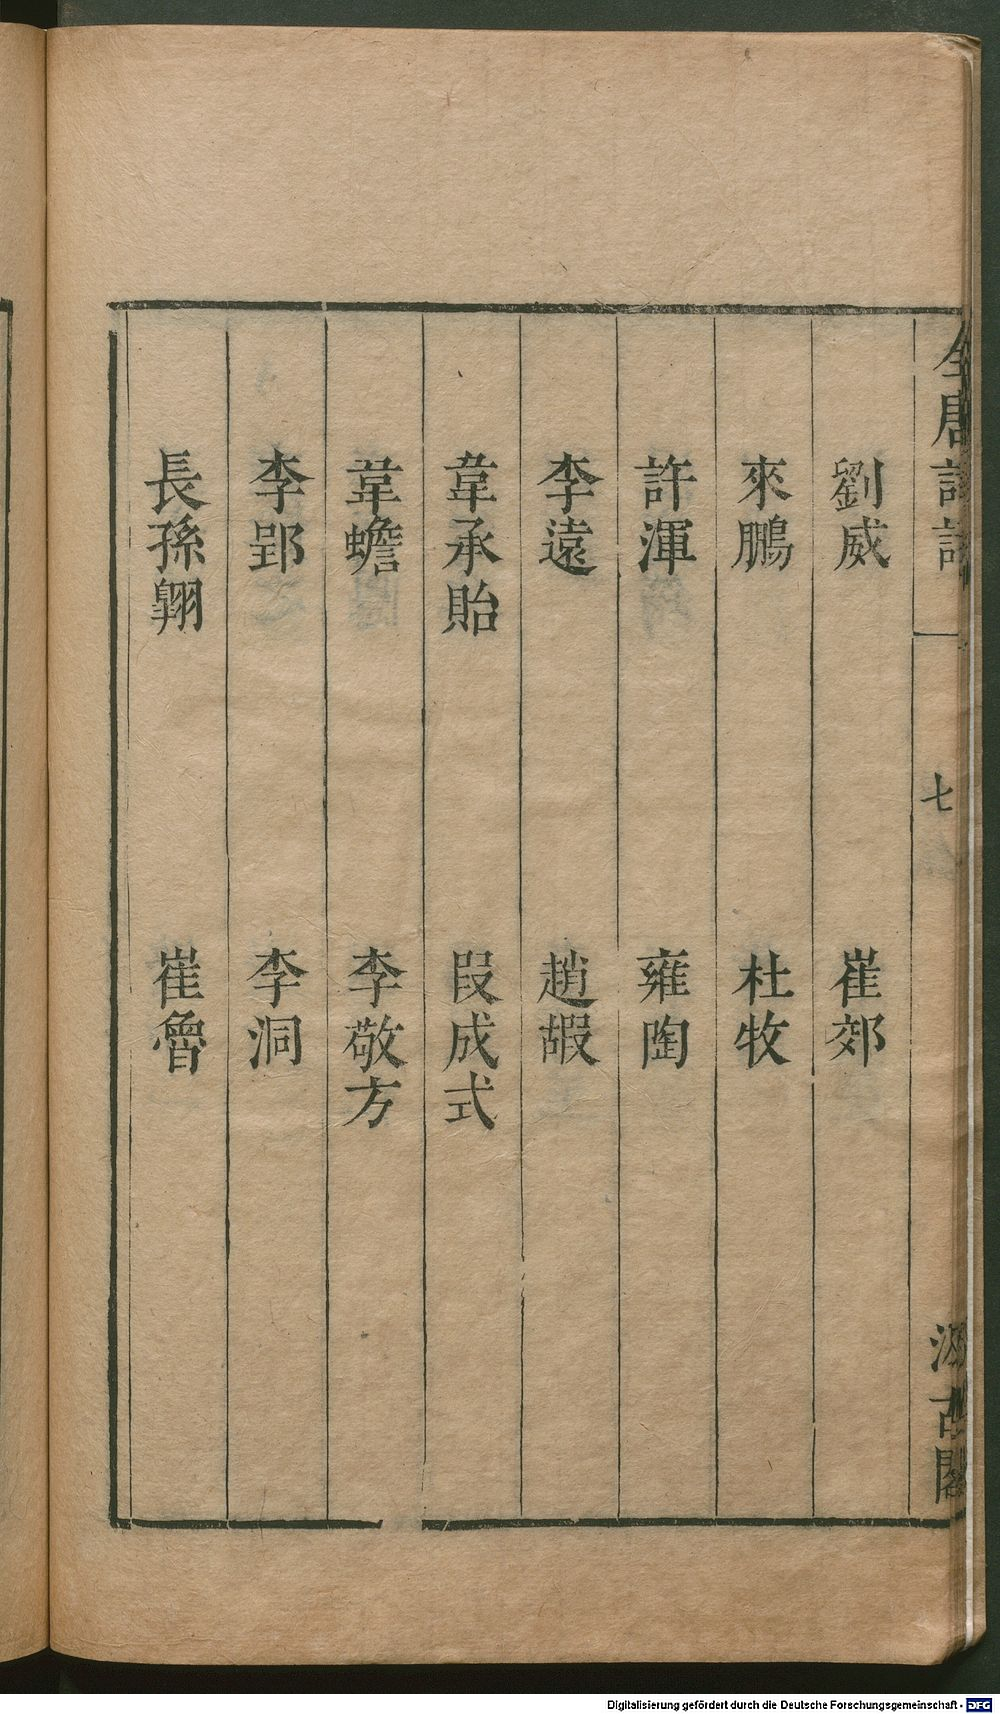 全唐詩話
七
汲古閣
劉威 崔郊
來鵬 杜牧
許渾 雍陶
李遠 趙嘏
韋承貽 段成式
韋蟾 李敬方
李郢 李洞
長孫翱 崔魯
Digitalisierung gefördert durch die Deutsche Forschungsgemeinschaft - DFG